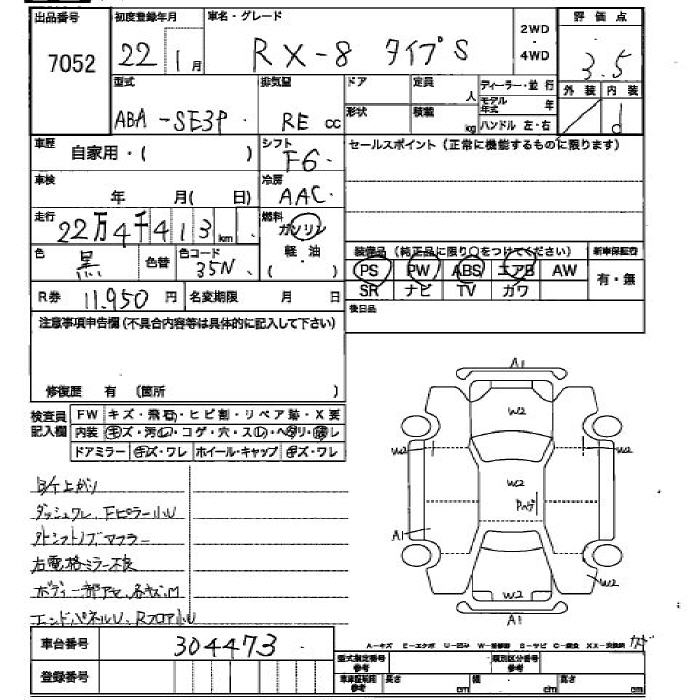 出品番号
7052
初度登録年月
22 1月
車名・グレード
RX-8 タイプS
2WD
・
4WD
評価点
3.5
外装 内装
d
型式
ABA-SE3P
排気量
RE cc
ドア
形状
定員
人
積載
kg
ディーラー・並行
モデル年式 年
ハンドル 左・右
車歴
自家用・( )
シフト
F6
セールスポイント(正常に機能するものに限ります)
車検
年 月( 日)
冷房
AAC
走行
22万4千413km
燃料
ガソリン
軽・油
・( )
色
黒
色替
色コード
35N
装備品(純正品に限り○をつけてください)
PS PW ABS エアB AW
SR ナビ TV カワ
新車保証書
有・無
R券 11,950円
名変期限 月 日
後日品
注意事項申告欄(不具合内容等は具体的に記入して下さい)
修復歴 有 (箇所 )
検査員記入欄
FW キズ・飛石・ヒビ割・リペア跡・X要
内装 キズ・汚レ・コゲ・穴・スレ・ヘタリ・腐レ
ドアミラー キズ・ワレ ホイール・キャップ キズ・ワレ
ダッシュワレ、Fピラー小U
マフラー
右電格ミラー不良
エンドパネルU、Rフロア小U
A1
W2
W2
W2
W2
A1
W2
W2
A1
車台番号
304473
登録番号
A-キズ E-エクボ U-凹み W-補修跡 S-サビ C-腐食 XX-交換済
型式指定番号
参考
類別区分番号
参考
車車証取用
参考
長さ cm
幅 cm
高さ cm